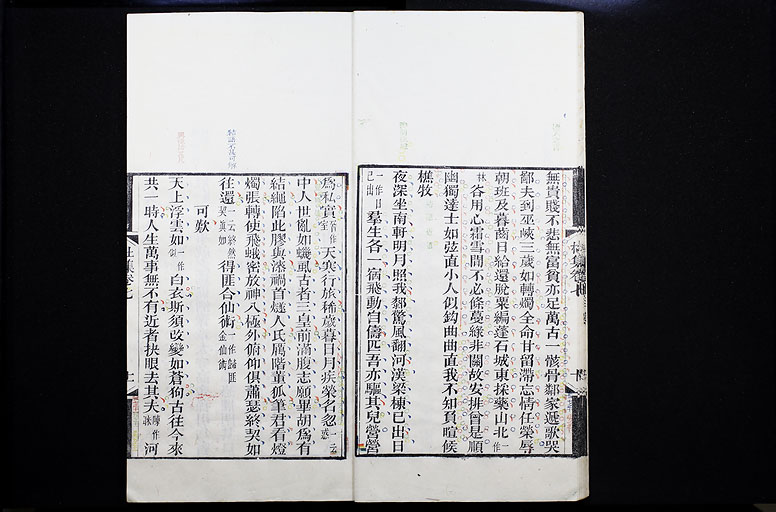 無貴賤不悲無富貧亦足萬古一骸骨鄰家遞歌哭
鄙夫到巫峽三歲如轉燭全命甘留滯忘情任榮辱
朝班及暮齒日給還脫粟編蓬石城東採藥山北作
林谷用心霜雪間不必條蔓綠非關故安排曾是順
幽獨達士如弦直小人似鉤曲曲直我不知負暄候
樵牧
夜深坐南軒明月照我膝驚風翻河漢梁棟已出日
一作日已出羣生各一宿飛動自儔匹吾亦驅其兒營營
為私實一作室天寒行旅稀歲暮日月疾榮名忽一云惑
中人世亂如蟣蝨古者三皇前滿腹志願畢胡為有
結繩陷此膠與漆禍首燧人氏厲階董狐筆君看燈
燭張轉使飛蛾密放神八極外俯仰俱蕭瑟終契如
往還一云終然契真如得匪合仙術一作歸匪金仙術
可歎
天上浮雲如一作似白衣斯須改變如蒼狗古往今來
共一時人生萬事無不有近者抉眼去其夫陳作眯河
杜集卷七